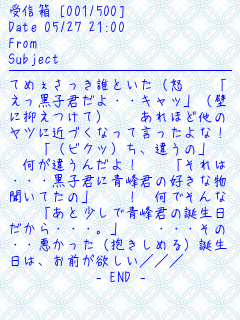 受信箱 [001/500]
Date 05/27 21:00
From
Subject
てめぇさっき誰といた（怒　「
えっ黒子君だよ・・キャッ」（壁
に抑えつけて）　　あれほど他の
ヤツに近づくなって言ったよな！
　「（ビクッ）ち、違うの」
　何が違うんだよ！　　「それは
・・・黒子君に青峰君の好きな物
聞いてたの」　　！　何でそんな
　「あと少しで青峰君の誕生日
だから・・・。」　　・・・その
・・悪かった（抱きしめる）誕生
日は、お前が欲しい／／／
- END -